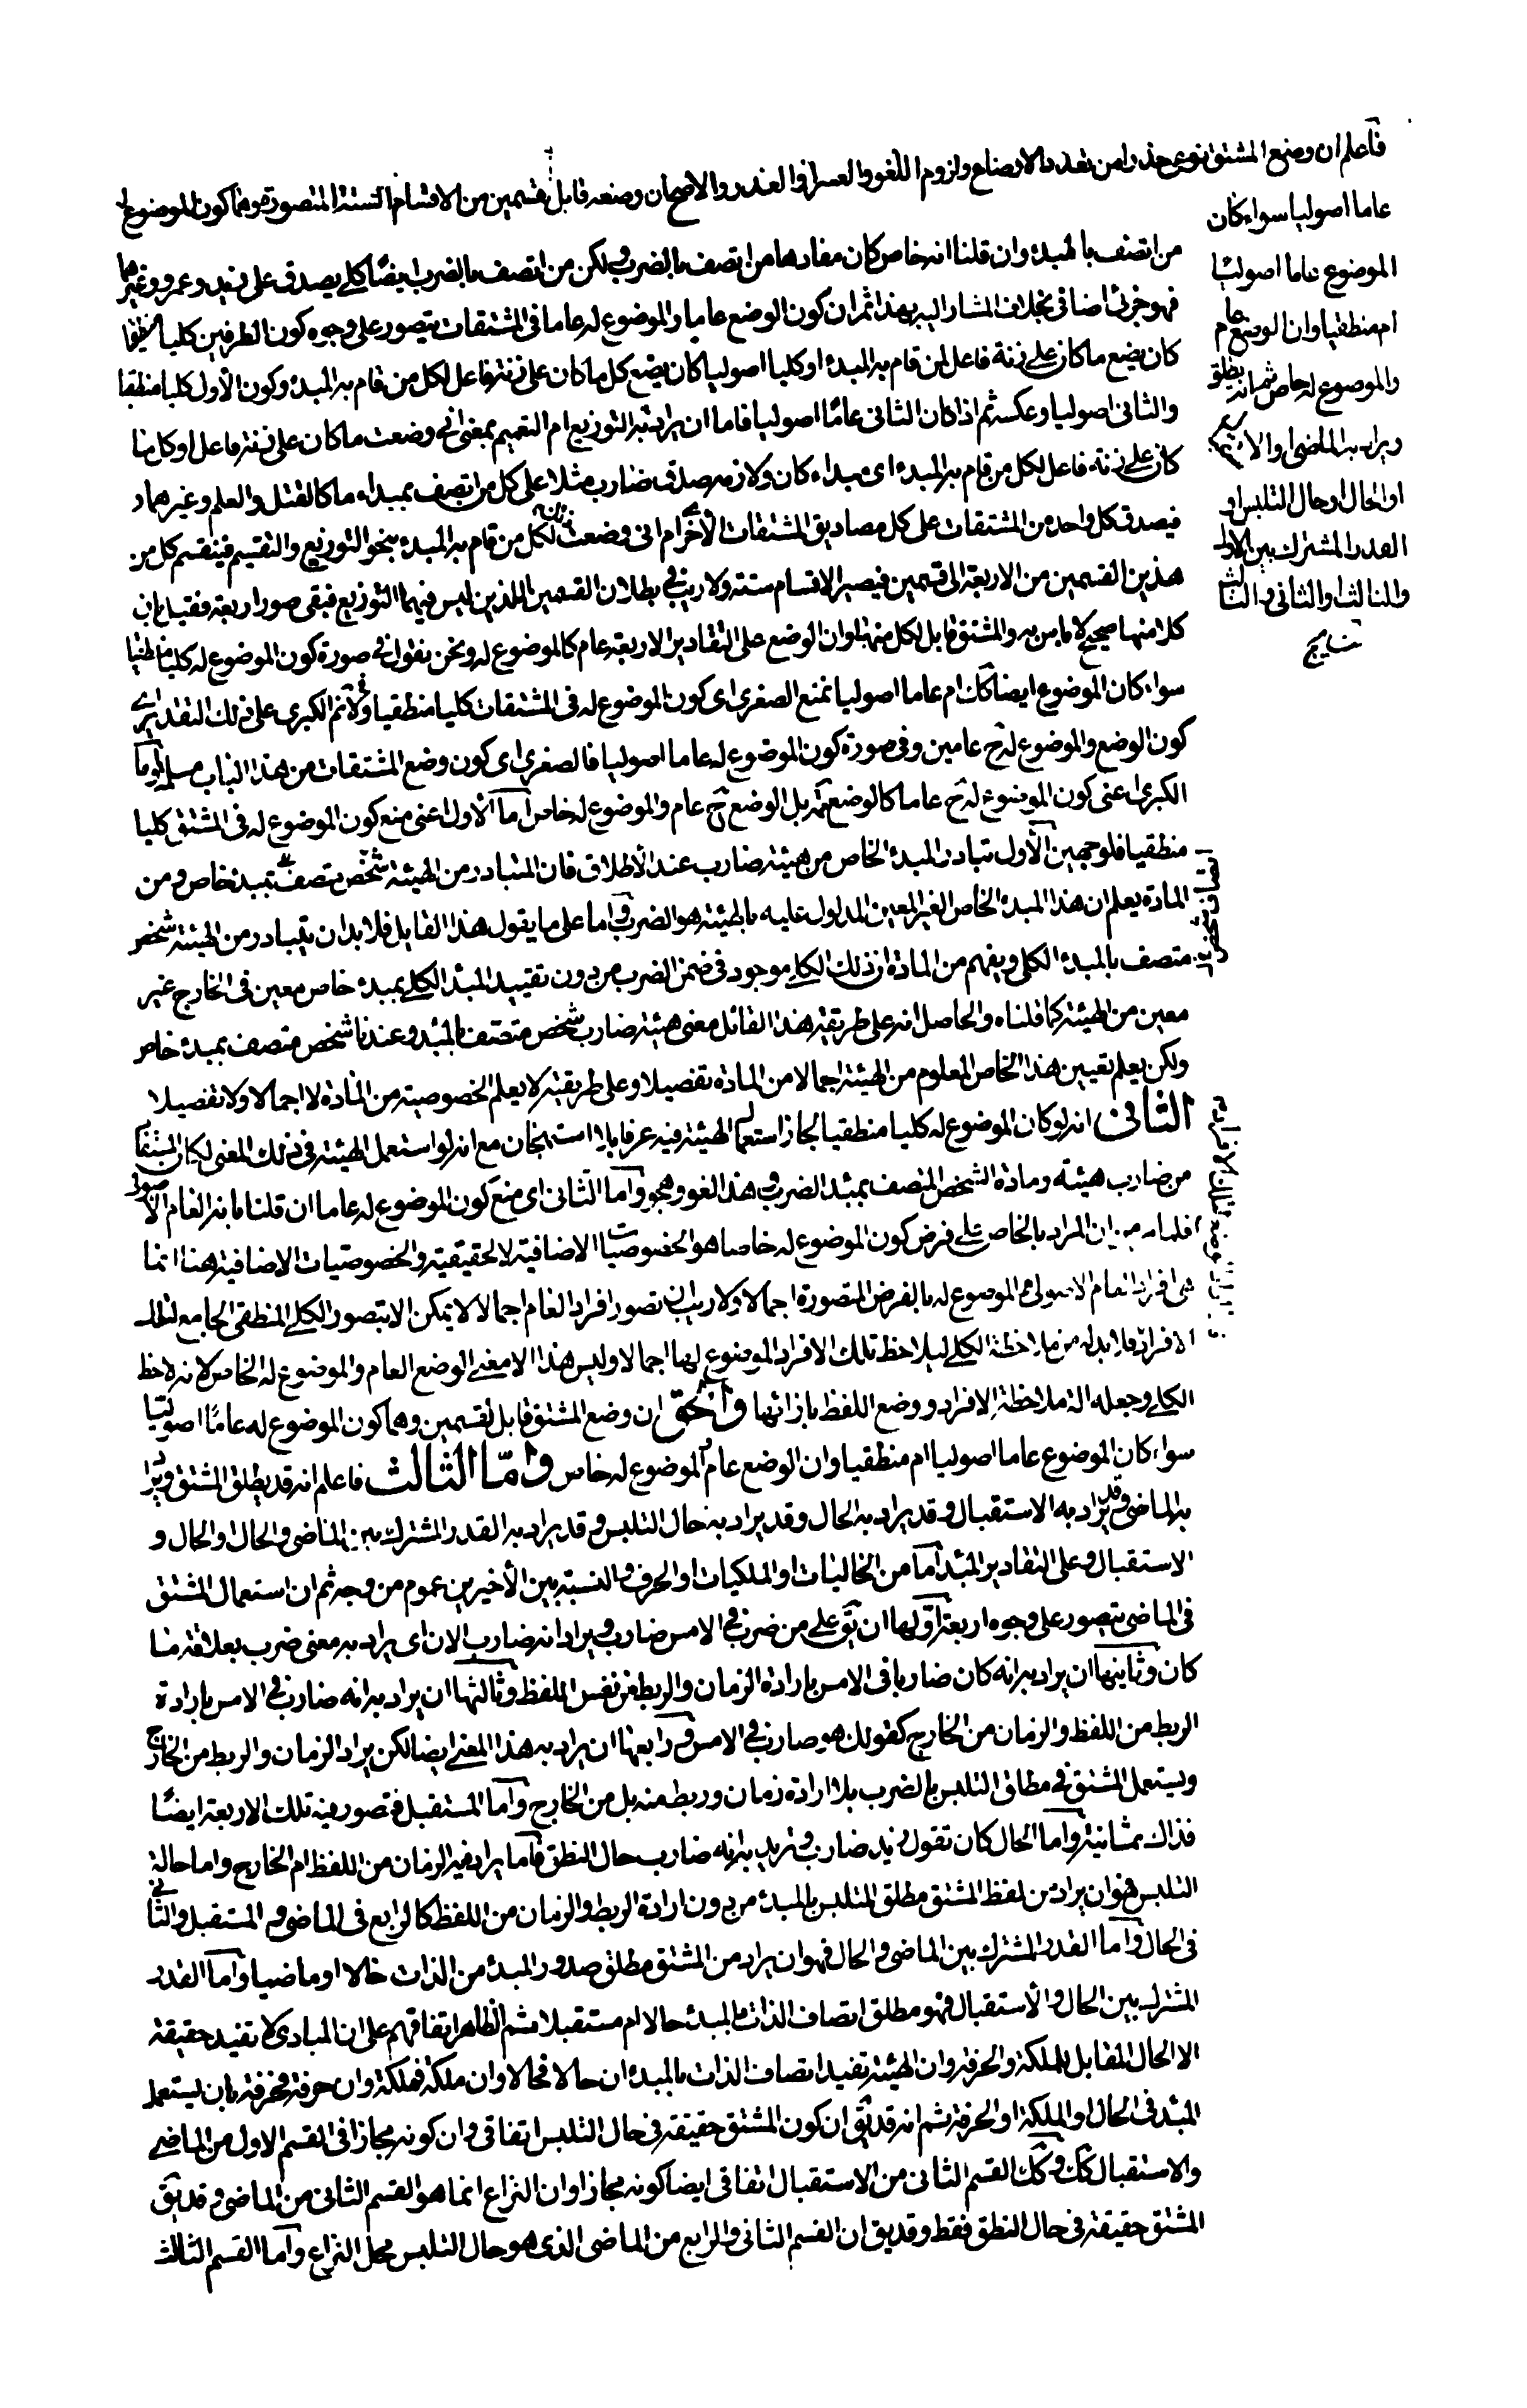 فاعلم ان وضع المشتق نوعى حذرا من تعدد الاوضاع ولزوم اللغو والعسر والاصحان وضعه قابل لقسمين من الاقسام الستة المتصورة وهما كون الموضوع له
عاما اصوليا سواء كان
الموضوع عاما اصوليا
ام منطقيا وان الوضع عام
والموضوع له خاص ثم انه يطلق
ويراد به الماضى والا
او الحال او حال التلبس او
القدر المشترك بين الاول
والثالث او الثانى والثالث
من اتصف بالمبدء وان قلنا انه خاص كان مفادها من اتصف بالضرب ولكن من اتصف بالضرب ايضا كلى يصدق على زيد وعمرو وغيرهما
فهو جزئى اضافى بخلاف المشار اليه بهذا ثم ان كون الوضع عاما والموضوع له عاما فى المشتقات يتصور على وجوه كون الطرفين كليا منطقيا
كان يضع ما كان على زنة فاعل لمن قام به المبدء او كليا اصوليا كان يضع كل ما كان على زنة فاعل لكل من قام به المبدء وكون الاول كليا منطقيا
والثانى اصوليا وعكسه ثم اذا كان الثانى عاما اصوليا فاما ان يراد به التوزيع ام التعميم بمعنى انى وضعت ما كان على زنة فاعل او كل ما
كان على زنة فاعل لكل من قام به المبدء اى مبداء كان ولازمه صدق ضارب مثلا على كل من اتصف بمبداء ما كالقتل والعلم وغيرهما
فيصدق كل واحد من المشتقات على كل مصاديق المشتقات الاخر ام انى وضعت لكل من قام به المبدء بنحو التوزيع والتقسيم فينقسم كل من
هذين القسمين من الاربعة الى قسمين فيصير الاقسام ستة ولا ريب فى بطلان القسمين اللذين ليس فيهما التوزيع فبقى صور اربعة فقيل بان
كلا منها صحيح لا باس به والمشتق قابل لكل منها وان الوضع على التقادير الاربعة عام كالموضوع له ونحن نقول فى صورة كون الموضوع له كليا منطقيا
سواء كان الموضوع ايضا كك ام عاما اصوليا نمنع الصغرى اى كون الموضوع له فى المشتقات كليا منطقيا ولا نم الكبرى على ذلك التقدير اى
كون الوضع والموضوع له ح عامين وفى صورة كون الموضوع له عاما اصوليا فالصغرى اى كون وضع المشتقات من هذا الباب مسلمة واما
الكبرى اعنى كون الموضوع له ح عاما كالوضع بل الوضع ح عام والموضوع له خاص اما الاول اعنى منع كون الموضوع له فى المشتق كليا
منطقيا فلوجهين الاول تبادر المبدء الخاص من هيئة ضارب عند الاطلاق فان المتبادر من الهيئة شخص متصف بمبدء خاص ومن
المادة يعلم ان هذا المبدء الخاص الغير المعين المدلول عليه بالهيئة هو الضرب واما على ما يقول هذا القايل فلا بد ان يتبادر من الهيئة شخص
متصف بالمبدء الكلى ويفهم من المادة ان ذلك الكلى موجود فى ضمن الضرب من دون تقييد المبدء الكلى بمبدء خاص معين فى الخارج غير
معين من الهيئة كما قلناه والحاصل انه على طريقة هذا القائل معنى هيئة ضارب شخص متصف بالمبدء وعندنا شخص متصف بمبدء خاص
ولكن يعلم تعيين هذا الخاص المعلوم من الهيئة اجمالا من المادة تفصيلا وعلى طريقته لا يعلم الخصوصية من المادة لا اجمالا ولا تفصيلا
الثانى انه لو كان الموضوع له كليا منطقيا لجاز استعمال الهيئة فيه عرفا بلا استهجان مع انه لو استعمل الهيئة فى ذلك المعنى لكان
من ضارب هيئة ومادة الشخص المتصف بمبدء الضرب وهذا لغو وهجو واما الثانى اى منع كون الموضوع له عاما ان قلنا بانه العام الاصولى
فلما ان المراد بالخاص على فرض كون الموضوع له خاصا هو الخصوصيات الاضافية لا الحقيقية والخصوصيات الاضافية هنا انما
هى افراد العام الاصولى الموضوع له بالفرض المتصورة اجمالا ولا ريب ان تصور افراد العام اجمالا لا يمكن الا بتصور الكلى المنطقى الجامع لتلك
الافراد فلا بد له من ملاحظة الكلى ليلاحظ تلك الافراد الموضوع لها اجمالا وليس هذا الا معنى الوضع العام والموضوع له الخاص لانه لاحظ
الكلى وجعله آلة ملاحظة الافراد ووضع اللفظ بازائها والحق ان وضع المشتق قابل لقسمين وهما كون الموضوع له عاما اصوليا
سواء كان الموضوع عاما اصوليا ام منطقيا وان الوضع عام والموضوع له خاص واما الثالث فاعلم انه قد يطلق المشتق ويراد
به الماضى وقد يراد به الاستقبال وقد يراد به الحال وقد يراد به حال التلبس وقد يراد به القدر المشترك بين الماضى والحال او الحال و
الاستقبال وعلى التقادير المبدء اما من الحاليات او الملكيات او الحرف والنسبة بين الاخيرين عموم من وجه ثم ان استعمال المشتق
فى الماضى يتصور على وجوه اربعة اولها ان يق على من ضرب فى الامس ضارب ويراد انه ضارب الان اى يراد به معنى ضرب بعلاقة ما
كان وثانيها ان يراد به انه كان ضاربا فى الامس بارادة الزمان والربط من نفس اللفظ وثالثها ان يراد به انه ضارب فى الامس بارادة
الربط من اللفظ والزمان من الخارج كقولك هو ضارب فى الامس ورابعها ان يراد به هذا المعنى ايضا لكن يراد الزمان والربط من الخارج
ويستعمل المشتق فى مطلق التلبس بالضرب بلا ارادة زمان وربط منه بل من الخارج واما المستقبل فتصور فيه تلك الاربعة ايضا
فذاك ثمانية واما الحال كان تقول زيد ضارب وتريد به انه ضارب حال النطق فاما يراد فيه الزمان من اللفظ ام الخارج واما حالة
التلبس فهو ان يراد من لفظ المشتق مطلق المتلبس بالمبدء من دون ارادة الربط والزمان من اللفظ كالرابع فى الماضى والمستقبل والثانى
فى الحال واما القدر المشترك بين الماضى والحال فهو ان يراد من المشتق مطلق صدور المبدء من الذات حالا او ماضيا واما القدر
المشترك بين الحال والاستقبال فهو مطلق اتصاف الذات بالمبدء حالا ام مستقبلا ثم الظاهر اتفاقهم على ان المبادى لا تفيد حقيقة
الا الحال المقابل للملكة والحرفة وان الهيئة تفيد اتصاف الذات بالمبدء ان حالا فحالا وان ملكة فملكة وان حرفة فحرفة بان يستعمل
المبدء فى الحال او الملكة او الحرفة ثم انه قد يق ان كون المشتق حقيقة فى حال التلبس اتفاقى وان كونه مجازا فى القسم الاول من الماضى
والاستقبال كك وكك القسم الثانى من الاستقبال اتفاقى ايضا كونه مجازا وان النزاع انما هو القسم الثانى من الماضى وقد يق
المشتق حقيقة فى حال النطق فقط وقد يق ان القسم الثانى والرابع من الماضى الذى هو حال التلبس محل النزاع واما القسم الثالث